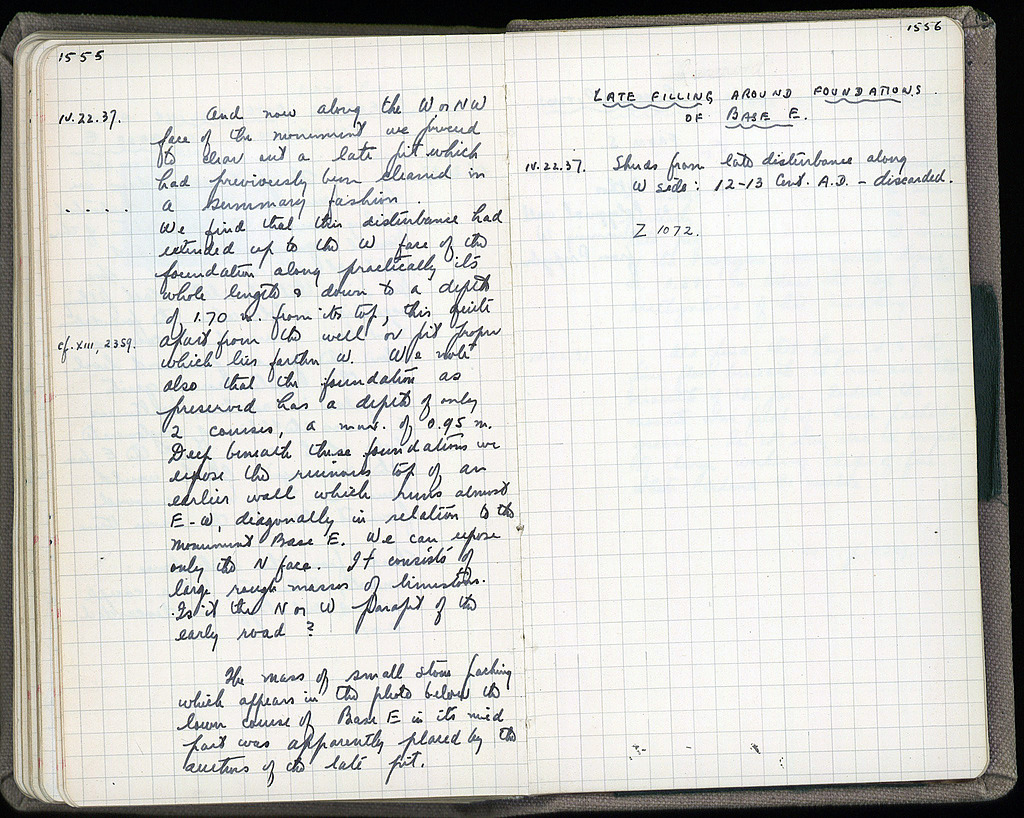 1555
IV.22.37.
And now along the W or NW
face of the monument we proceed
to clear out a late pit which
had previously been cleared in
. . . . a summary fashion.
We find that this disturbance had
extended up to the W face of the
foundation along practically its
whole length & down to a depth
of 1.70 m. from its top, this quite
cf. XIII, 2359.
apart from the well or pit proper
which lies farther W. We note
also that the foundation as
preserved has a depth of only
2 courses, a max. of 0.95 m.
Deep beneath these foundations we
expose the ruinous top of an
earlier wall which runs almost
E-W, diagonally in relation to the
Monument Base E. We can expose
only the N face. It consists of
large rough masses of limestone.
Is it the N or W Parapet of the
early road?
The mass of small stone packing
which appears in the photo below the
lower course of Base E in its mid
part was apparently placed by the
authors of the late pit.
1556
LATE FILLING AROUND FOUNDATIONS.
OF BASE E.
IV.22.37. Sherds from late disturbance along
W side: 12-13 Cent. A.D. – discarded.
Z 1072.